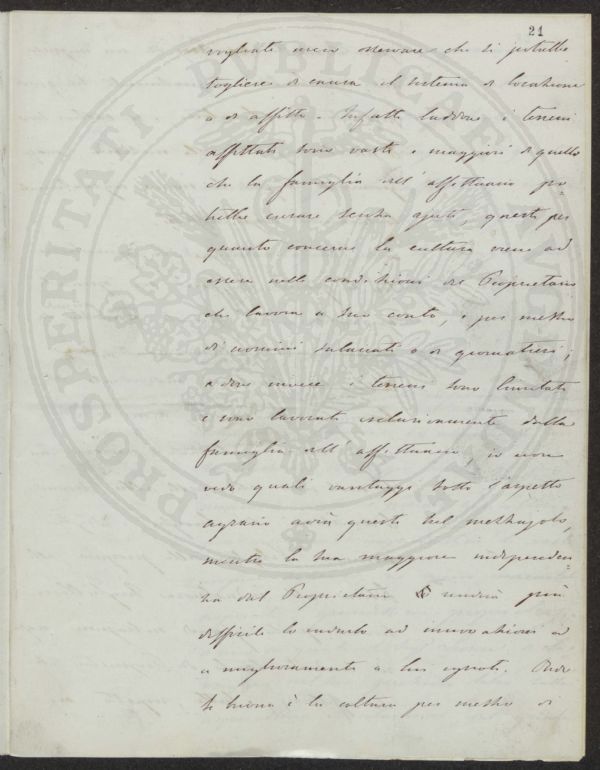 21
vogliate meco osservare che si potrebbe
togliere di causa il sistema di locazione
o di affitto. Infatti laddove i terreni
affittati sono vasti e maggiori di quello
che la famiglia dell' affittuario po-
trebbe curare senza ajuti, questi per
quanto concerne la cultura viene ad
essere nelle condizioni del Proprietario
che lavora a suo conto, e per mezzo
di uomini salariati o di giornalieri;
a dove invece i terreni sono limitati
e sono lavorati esclusivamente dalla
famiglia dell' affittuario, io non
vedo quali vantaggi sotto l'aspetto
agrario avrà questi sul mezzajolo,
mentre la sua maggiore indipenden-
za dal Proprietario renderà più
difficile lo indurlo ad innovazioni ed
a miglioramenti a lui ignoti. Onde
se buona è la coltura per mezzo di
PROSPERITATI PUBLICAE AUGENDAE